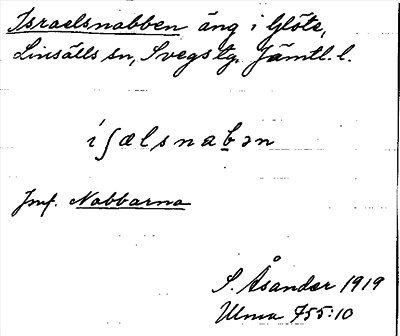 Israelsnabben äng i Glöte,
Linsälls sn, Svegs tg. Jämtl. l.
íʃælsnabən
Jmf. Nabbarna
S. Åsander 1919
Ulma 755:10